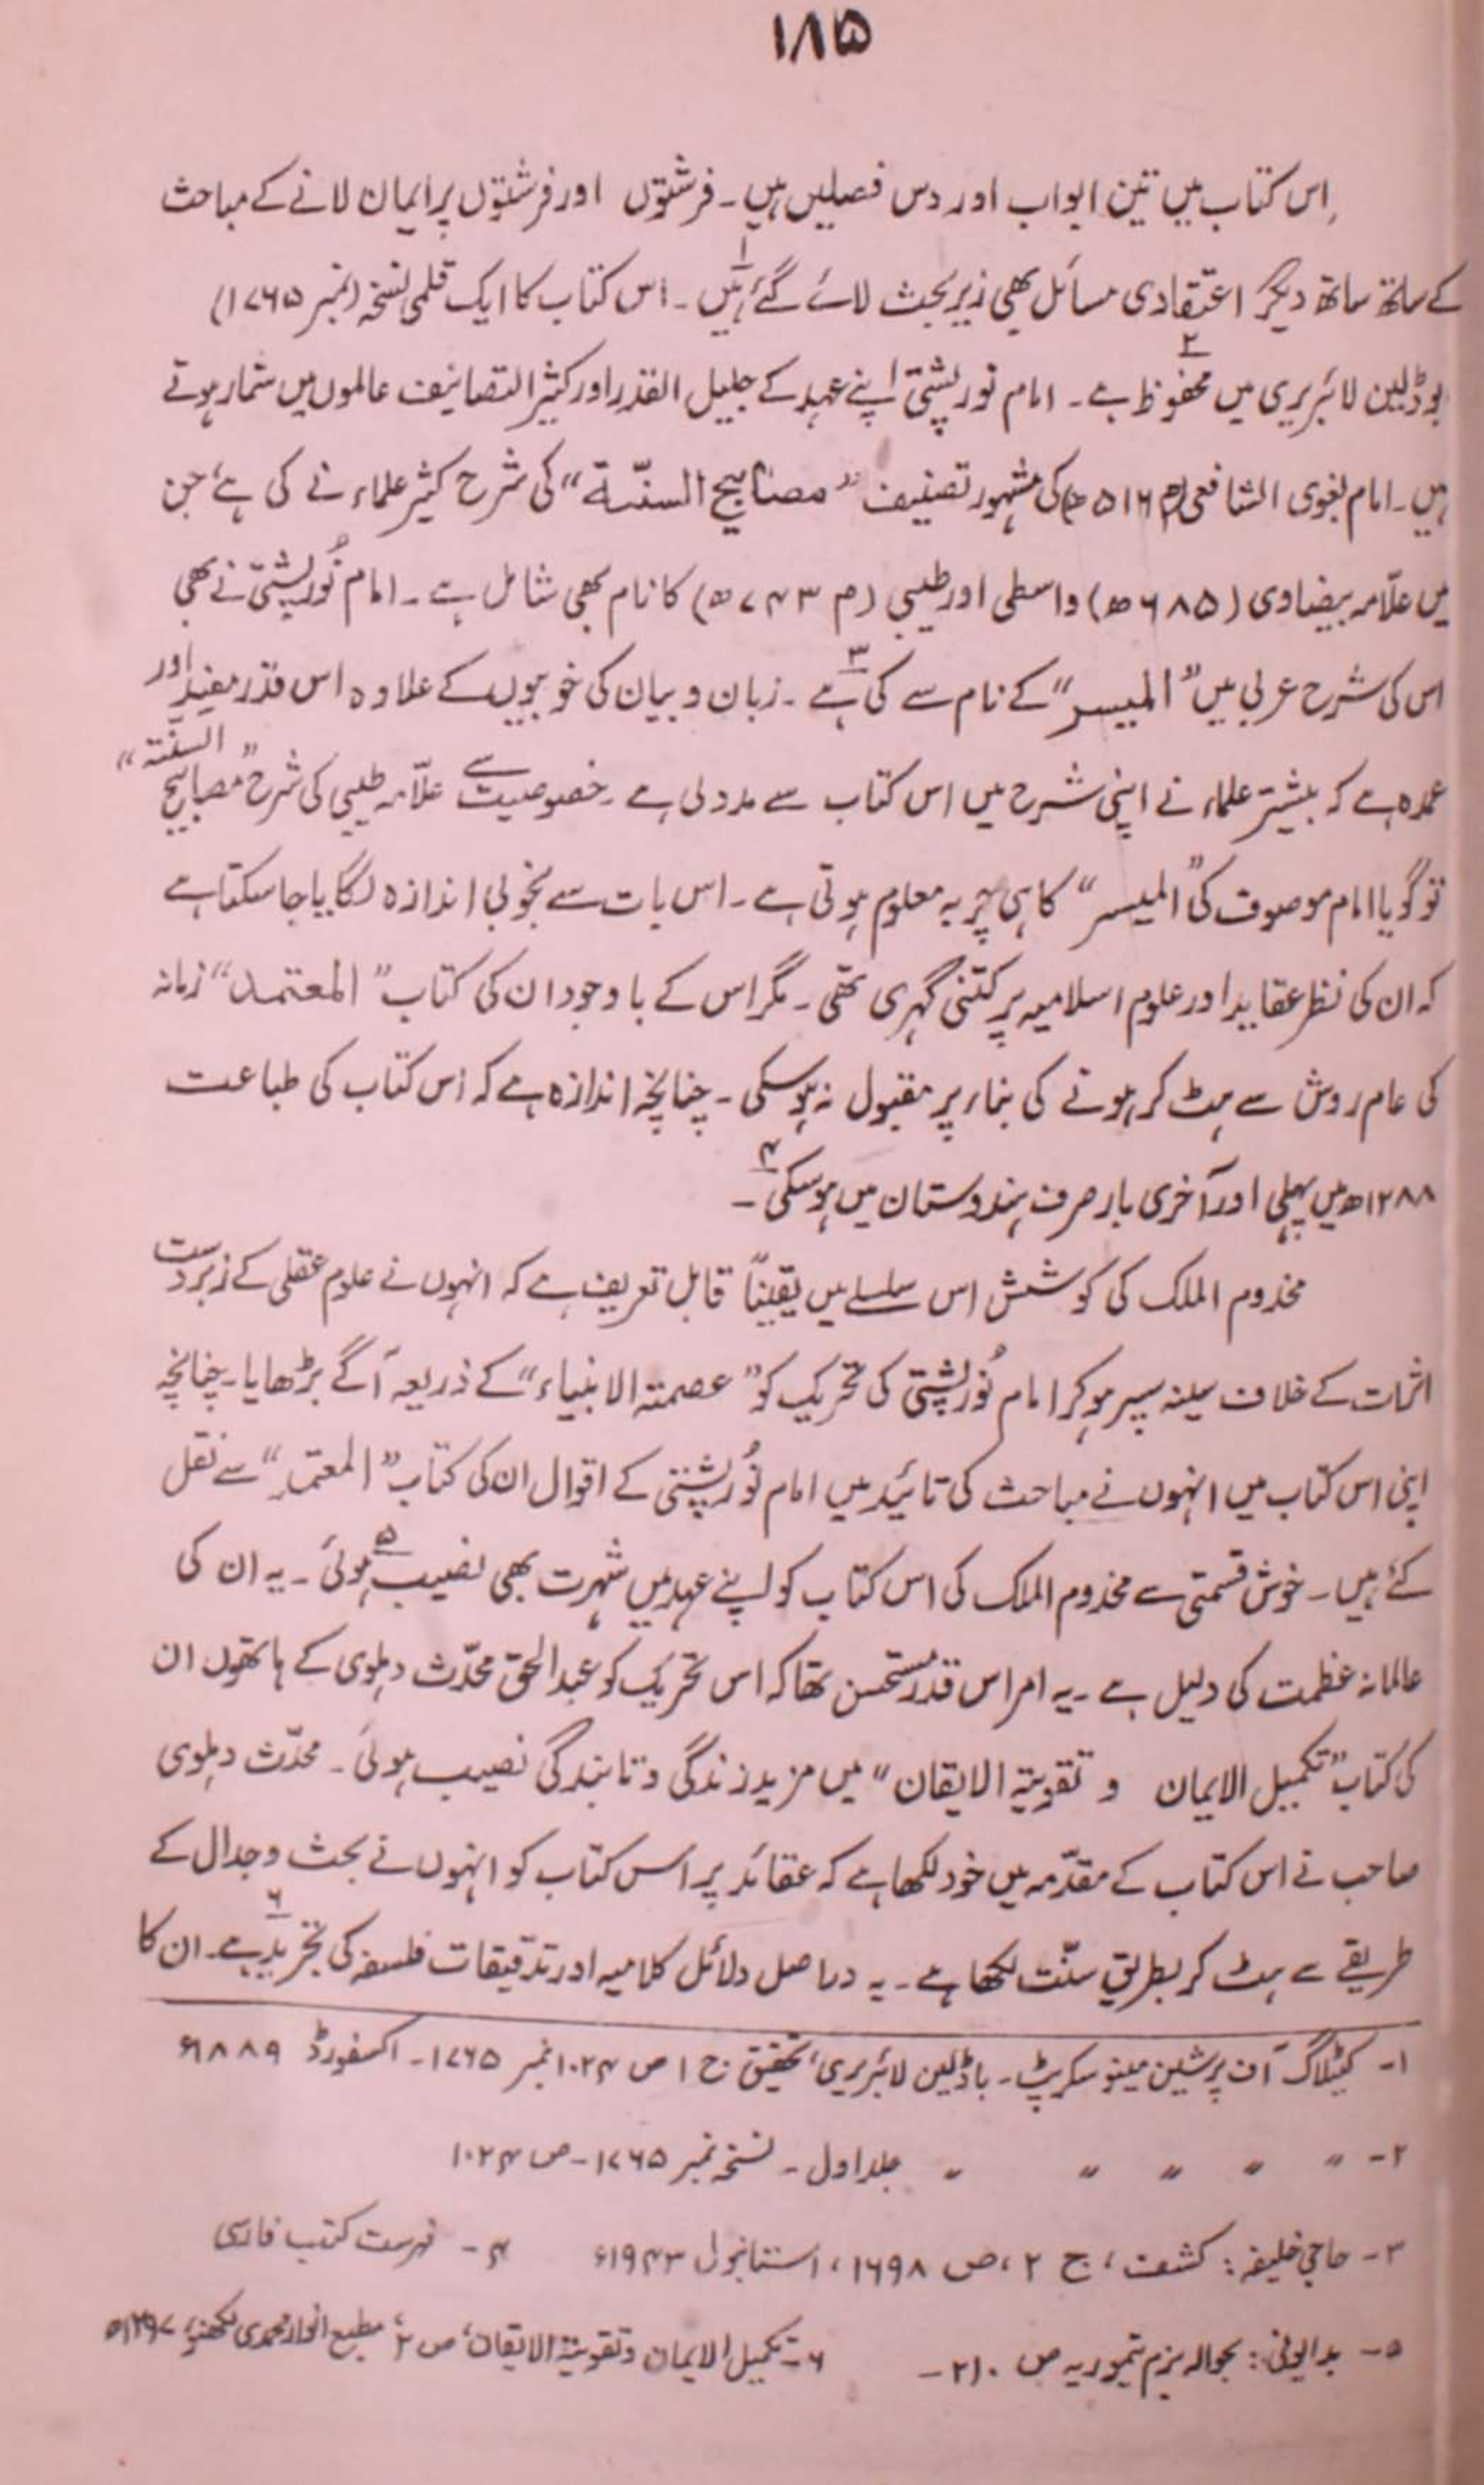 ۱۸۵
اس کتاب میں تین ابواب اور دس فصلیں ہیں۔ فرشتوں اور فرشتوں پر ایمان لانے کے مباحث
کے ساتھ ساتھ دیگر اعتقادی مسائل بھی زیر بحث لائے گئے ہیں۱۔ اس کتاب کا ایک قلمی نسخہ (نمبر ۱۷۶۵)
بوڈلین لائبریری میں محفوظ۲ ہے۔ امام تورپشتی اپنے عہد کے جلیل القدر اور کثیر التصانیف عالموں میں شمار ہوتے
ہیں۔ امام بغوی الشافعی (م ۵۱۶ھ) کی مشہور تصنیف "مصابیح السنّۃ" کی شرح کثیر علماء نے کی ہے، جن
میں علّامہ بیضاوی (۶۸۵ھ) واسطی اور طیبی (م ۷۴۳ھ) کا نام بھی شامل ہے۔ امام تُورپشتی نے بھی
اس کی شرح عربی میں "المیسر" کے نام سے کی۳ ہے۔ زبان و بیان کی خوبیوں کے علاوہ اس قدر مفید اور
عمدہ ہے کہ بیشتر علماء نے اپنی شرح میں اس کتاب سے مدد لی ہے۔ خصوصیت سے علّامہ طیبی کی شرح "مصابیح السنّتہ"
تو گویا امام موصوف کی "المیسر" کا ہی چربہ معلوم ہوتی ہے۔ اس بات سے بخوبی اندازہ لگایا جا سکتا ہے
کہ ان کی نظر عقاید اور علوم اسلامیہ پر کتنی گہری تھی۔ مگر اس کے باوجود ان کی کتاب "المعتمد" زمانہ
کی عام روش سے ہٹ کر ہونے کی بناء پر مقبول نہ ہوسکی۔ چنانچہ اندازہ ہے کہ اس کتاب کی طباعت
۱۲۸۸ھ میں پہلی اور آخری بار صرف ہندوستان میں ہوسکی۴۔
مخدوم الملک کی کوشش اس سلسلے میں یقیناً قابل تعریف ہے کہ انہوں نے علوم عقلی کے زبردست
اثرات کے خلاف سینہ سپر ہوکر امام تُورپشتی کی تحریک کو "عصمتہ الانبیاء" کے ذریعہ آگے بڑھایا۔ چنانچہ
اپنی اس کتاب میں انہوں نے مباحث کی تائید میں امام تُورپشتی کے اقوال ان کی کتاب "المعتمد" سے نقل
کئے ہیں۔ خوش قسمتی سے مخدوم الملک کی اس کتاب کو اپنے عہد میں شہرت بھی نصیب۵ ہوئی۔ یہ ان کی
عالمانہ عظمت کی دلیل ہے۔ یہ امر اس قدر مُستحسن تھا کہ اس تحریک کو عبدالحق محدّث دہلوی کے ہاتھوں ان
کی کتاب "تکمیل الایمان و تقویۃ الایقان" میں مزید زندگی و تابندگی نصیب ہوئی۔ محدّث دہلوی
صاحب نے اس کتاب کے مقدّمہ میں خود لکھا ہے کہ عقائد پر اس کتاب کو انہوں نے بحث و جدال کے
طریقے سے ہٹ کر بطریقِ سنّت لکھا ہے۔ یہ دراصل دلائل کلامیہ اور تدقیقات فلسفہ کی تجرید۶ ہے۔ ان کا
۱۔ کیٹلاگ آف پرشین مینوسکرپٹ۔ باڈلین لائبریری، تحقیق ج ۱ ص ۱۰۲۴ نمبر ۱۷۶۵۔ اکسفورڈ ۱۸۸۹ء
۲۔ " " " " " جلد اول۔ نسخہ نمبر ۱۷۶۵۔ ص ۱۰۲۴
۳۔ حاجی خلیفہ: کشف، ج ۲، ص ۱۶۹۸، استانبول ۱۹۴۳ء ۴۔ فہرست کتب فارسی
۵۔ بدایونی: بحوالہ بزم تیموریہ ص ۲۱۰۔ ۶۔ تکمیل الایمان و تقویۃ الایقان، ص ۲، مطبع انوار محمدی لکھنؤ،